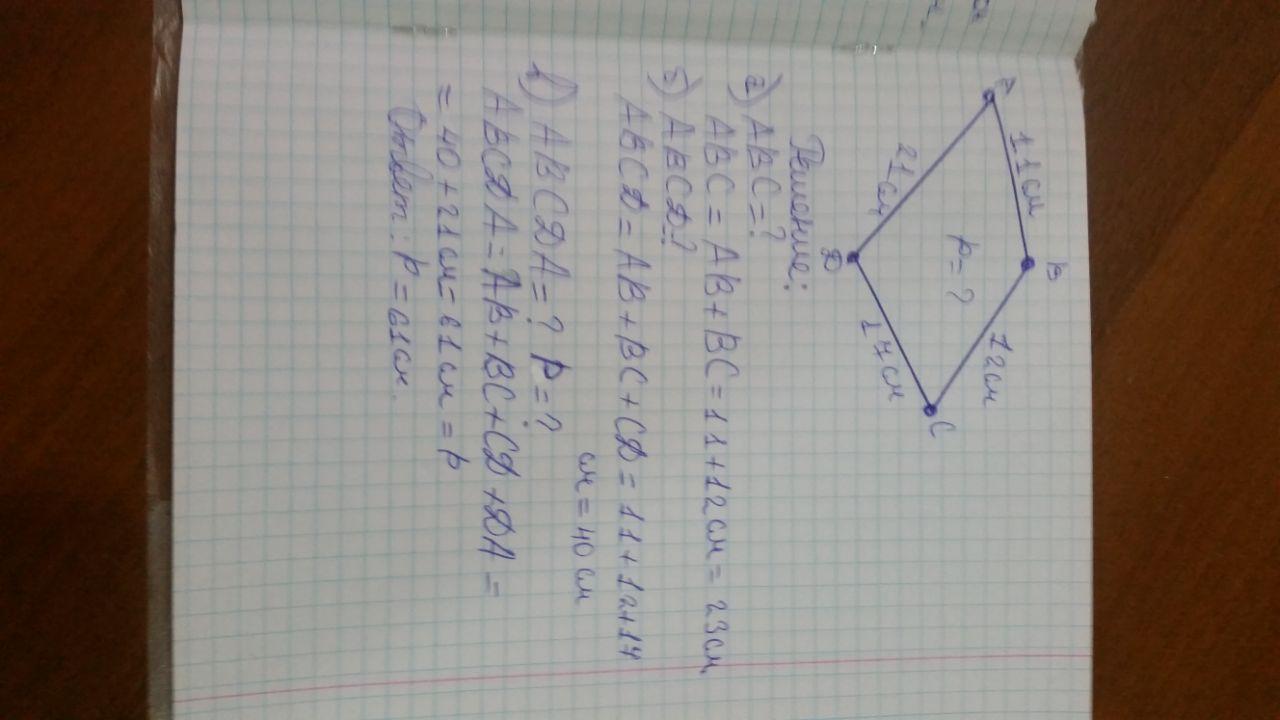 A
11см
B
21см
p=?
12см
D
17см
C
Решение:
а) ABC=?
ABC=AB+BC=11+12см=23см
б) ABCD?
ABCD=AB+BC+CD=11+12+17
см=40см
в) ABCDA=? P=?
ABCDA=AB+BC+CD+DA=
=40+21см=61см=p
Ответ: p=61см.